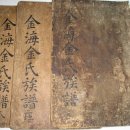 金海金氏族譜
金海金氏族譜
金海金氏族譜